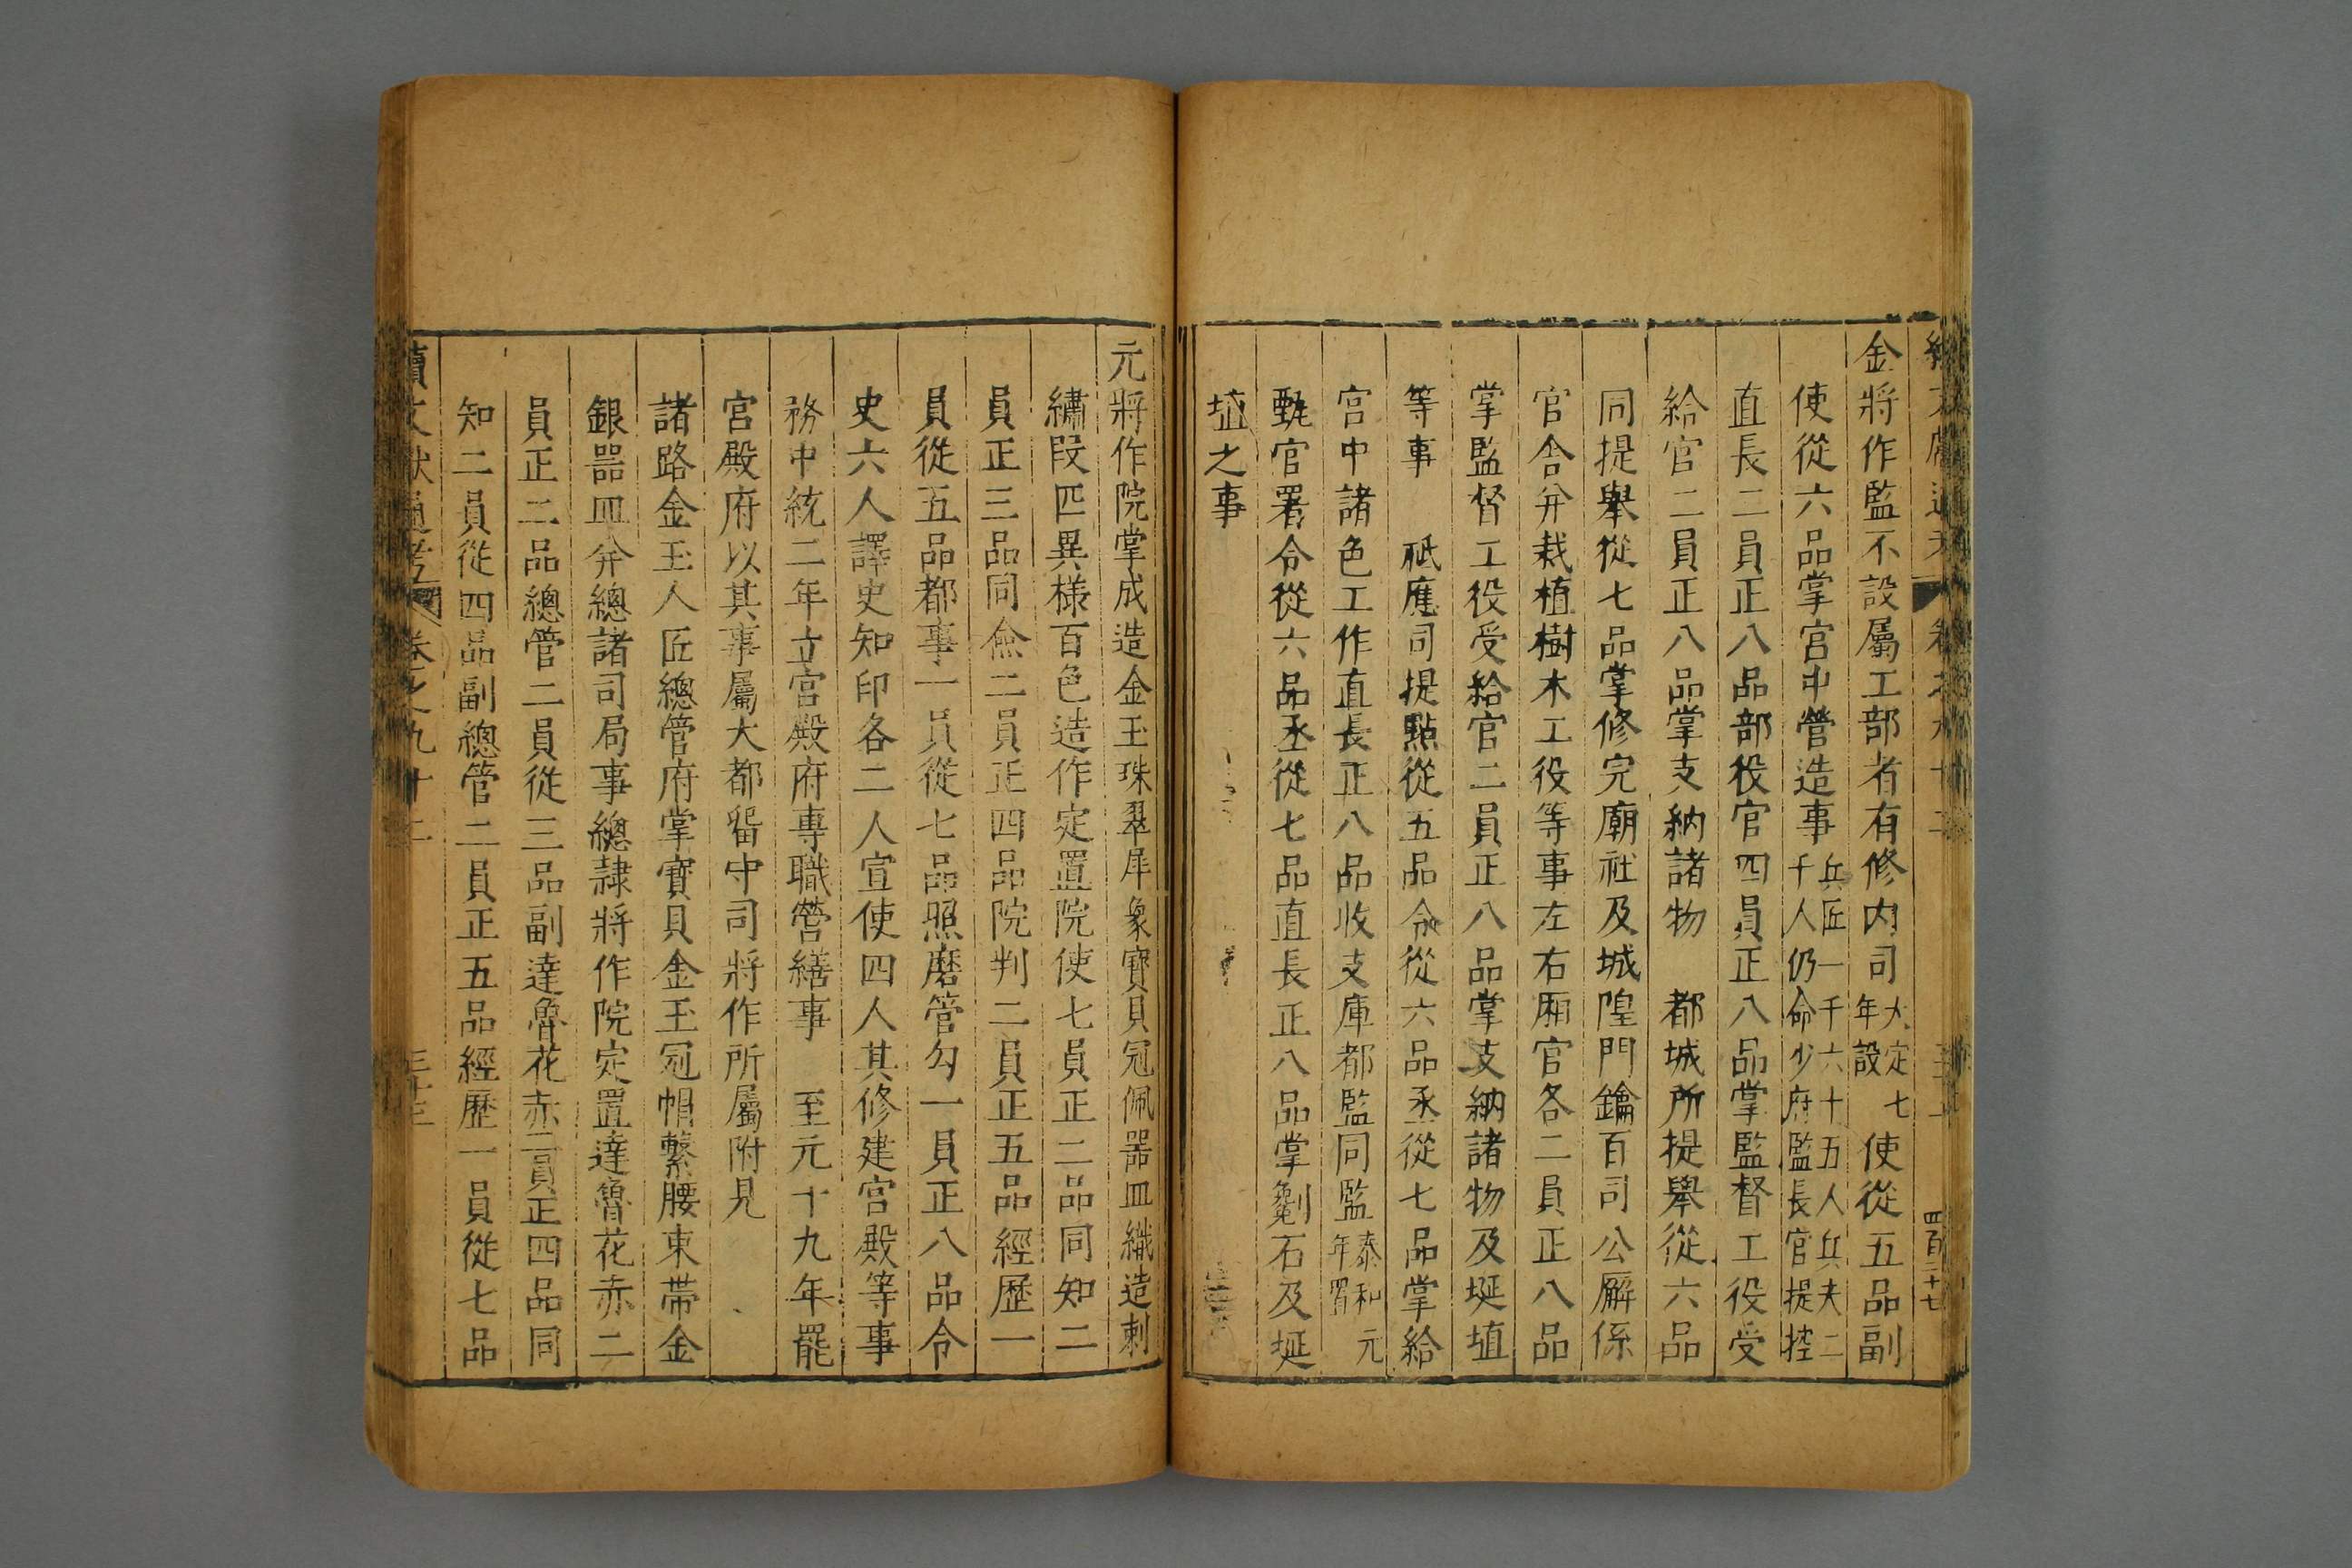 金將作監不設屬工部者有修內司大定七年設使從五品副
使從六品掌宮中營造事兵匠一千六十五人兵夫二千人仍命少府監長官提控
直長二員正八品部役官四員正八品掌監督工役受
給官二員正八品掌支納諸物　都城所提舉從六品
同提舉從七品掌修完廟社及城隍門鑰百司公廨係
官舍并栽植樹木工役等事左右廂官各二員正八品
掌監督工役受給官二員正八品掌支納諸物及埏埴
等事　祗應司提點從五品令從六品丞從七品掌給
宮中諸色工作直長正八品收支庫都監同監泰和元年置
甄官署令從六品丞從七品直長正八品掌劖石及埏
埴之事
元將作院掌成造金玉珠翠犀象寶貝冠佩器皿織造刺
繡段匹異樣百色造作定置院使七員正二品同知二
員正三品同僉二員正四品院判二員正五品經歷一
員從五品都事一員從七品照磨管勾一員正八品令
史六人譯史知印各二人宣使四人其修建宮殿等事
務中統二年立宮殿府專職營繕事　至元十九年罷
宮殿府以其事屬大都留守司將作所屬附見
諸路金玉人匠總管府掌寶貝金玉冠帽繫腰束帶金
銀器皿并總諸司局事總隸將作院定置達魯花赤二
員正二品總管二員從三品副達魯花赤二員正四品同
知二員從四品副總管二員正五品經歷一員從七品
續文獻通考卷之九十二